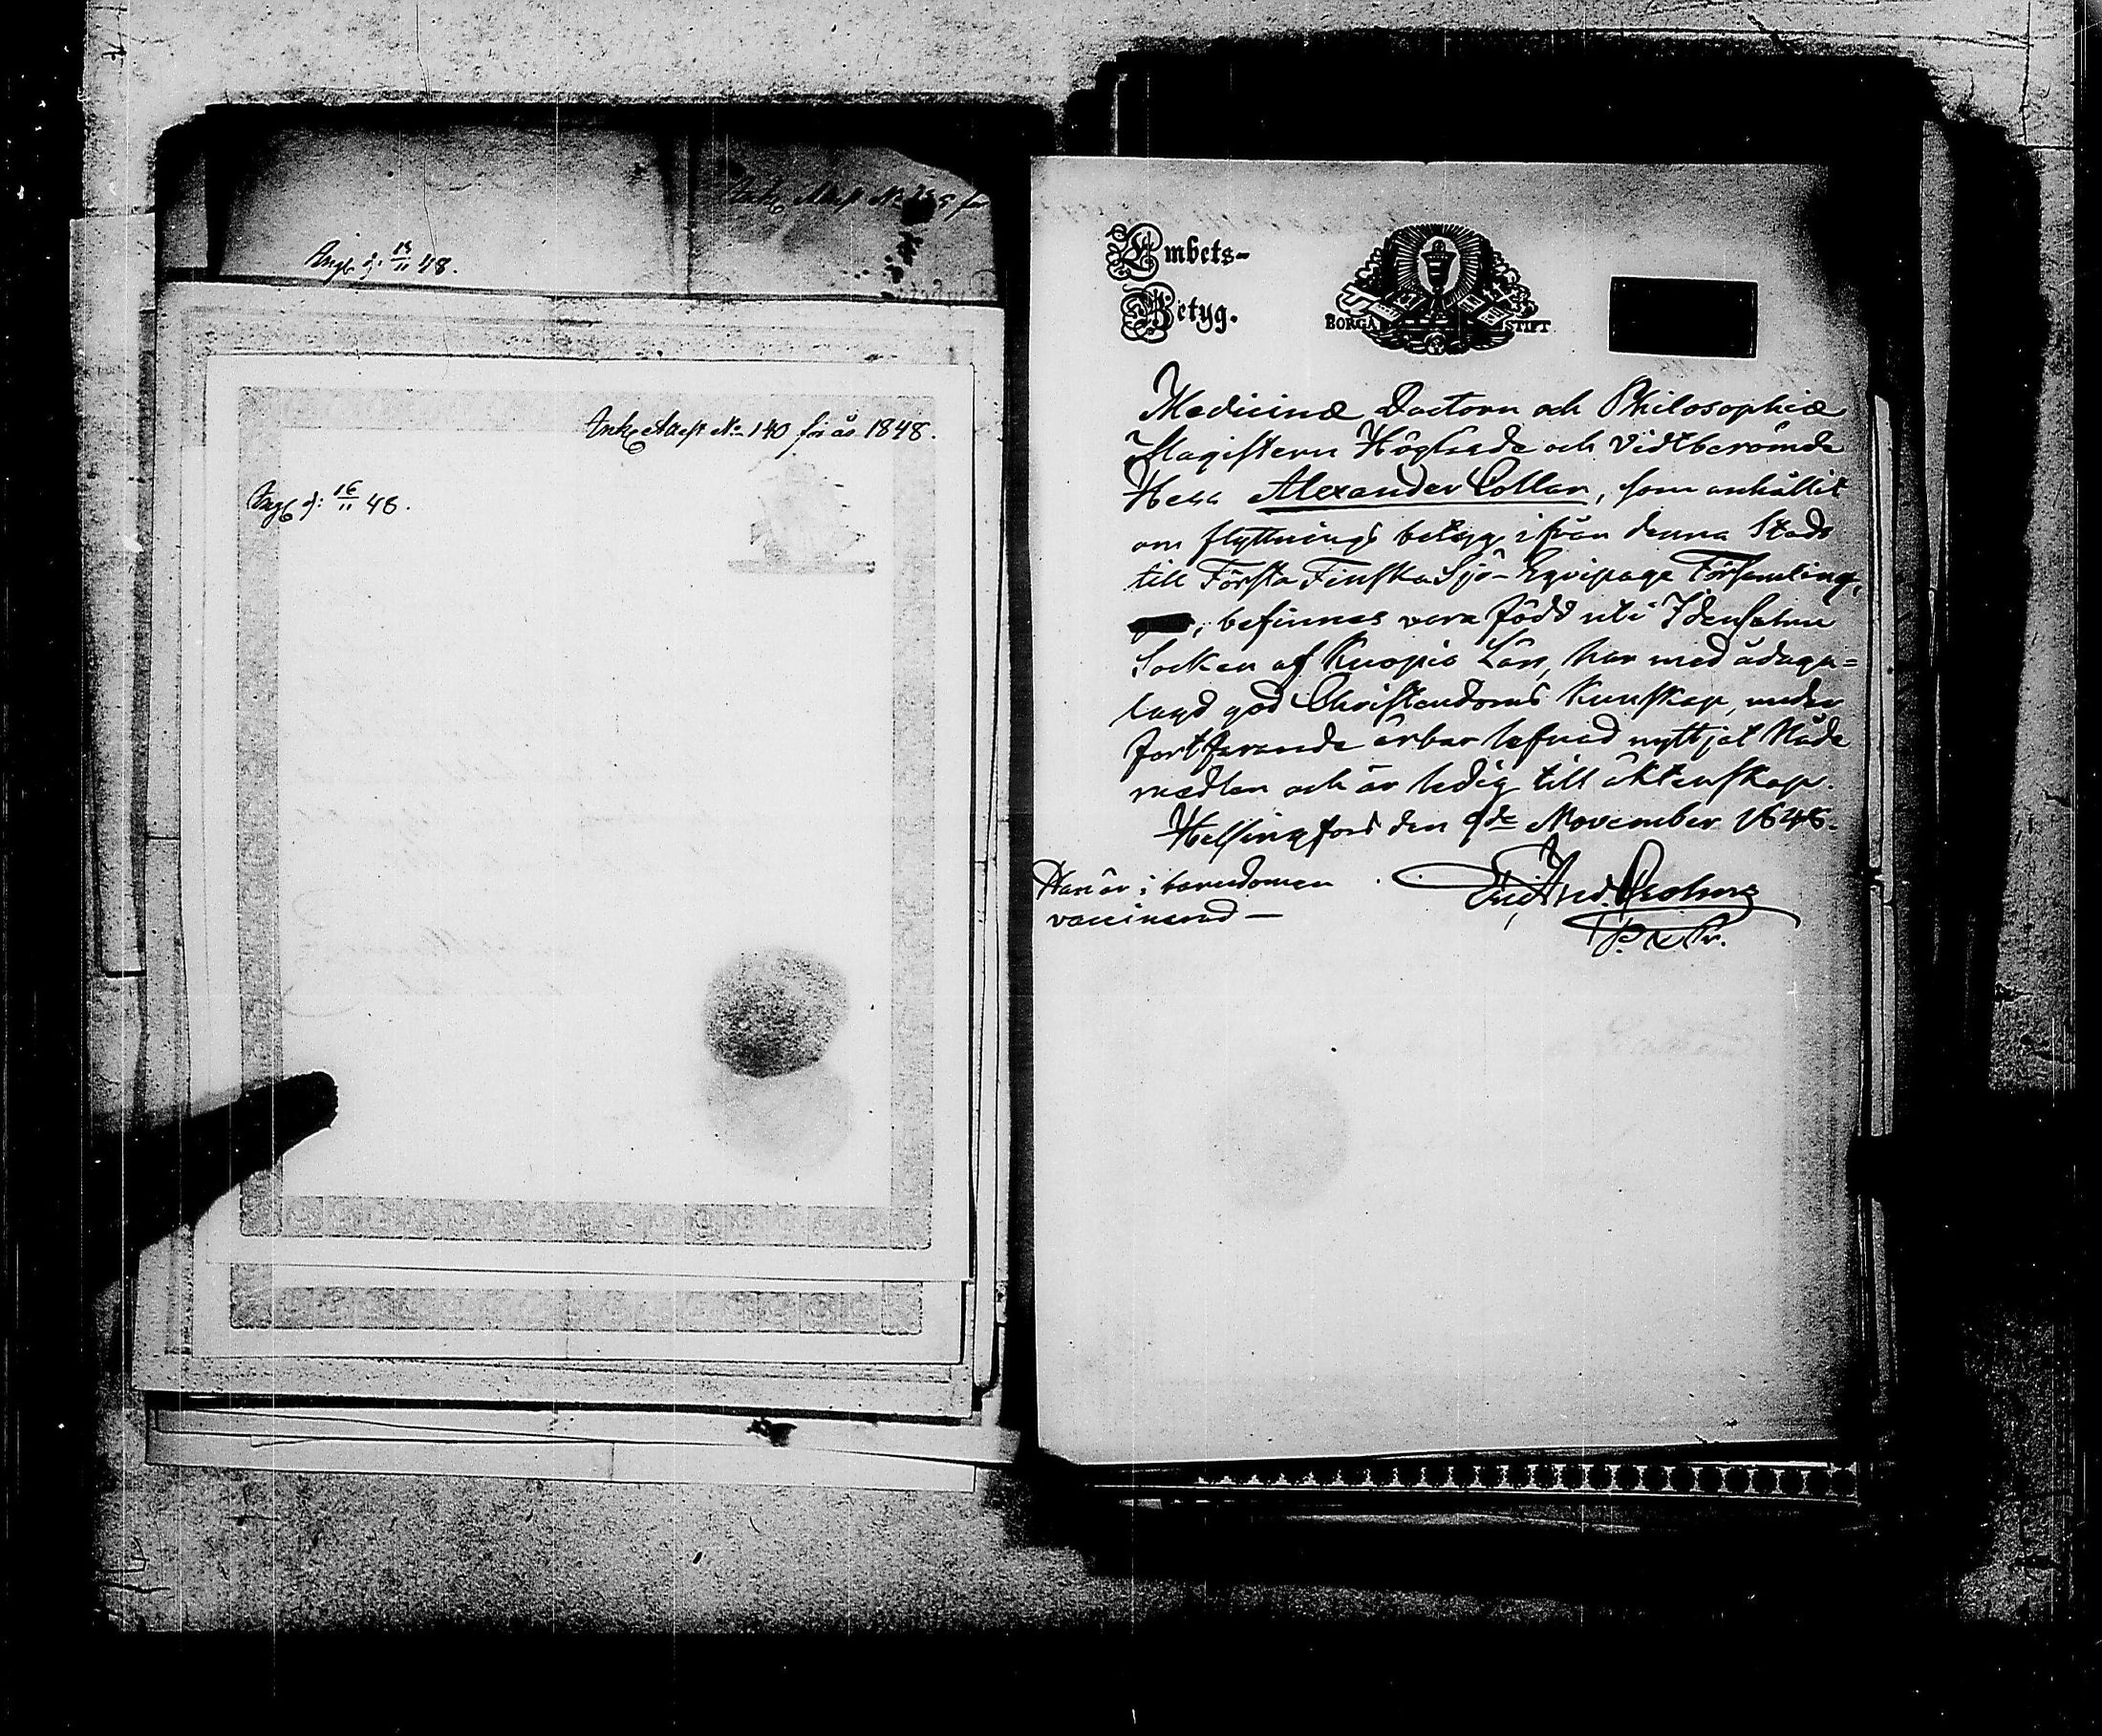 Ank. Attest No 139 för
Ingk d. 13/11 48.
Ank. Attest No 140 för år 1848.
Ingk d: 16/11 48.
Embets-
Betyg.
BORGÅ STIFT
Medicinæ Doctorn och Philosophiæ
Magistern Höglärde och Vidtberömde
Herr Alexander Collan, som anhållit
om flyttnings betyg ifrån denna Stads
till Första Finska Sjö-Equipage Församling,
befinnes vara född uti Idensalmi
Socken af Kuopio Län, har med ådaga=
lagd god Christendoms Kunskap, under
fortfarande ärbar lefnad nyttjat Nåde
medlen och är ledig till äktenskap.
Helsingfors den 9de November 1848.
Han är i barndomen
vaccinerad—